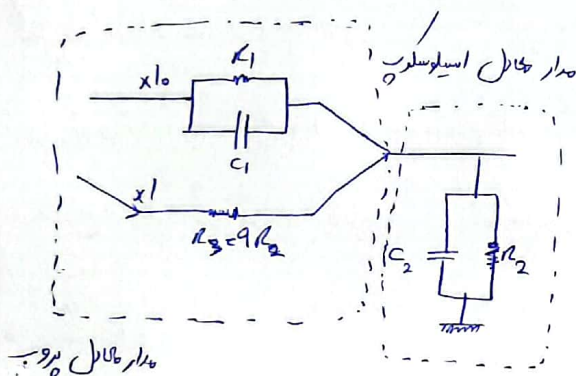 مدار معادل اسیلوسکوپ
x10
R1
C1
x1
R3=9R2
C2
R2
مدار معادل پروب